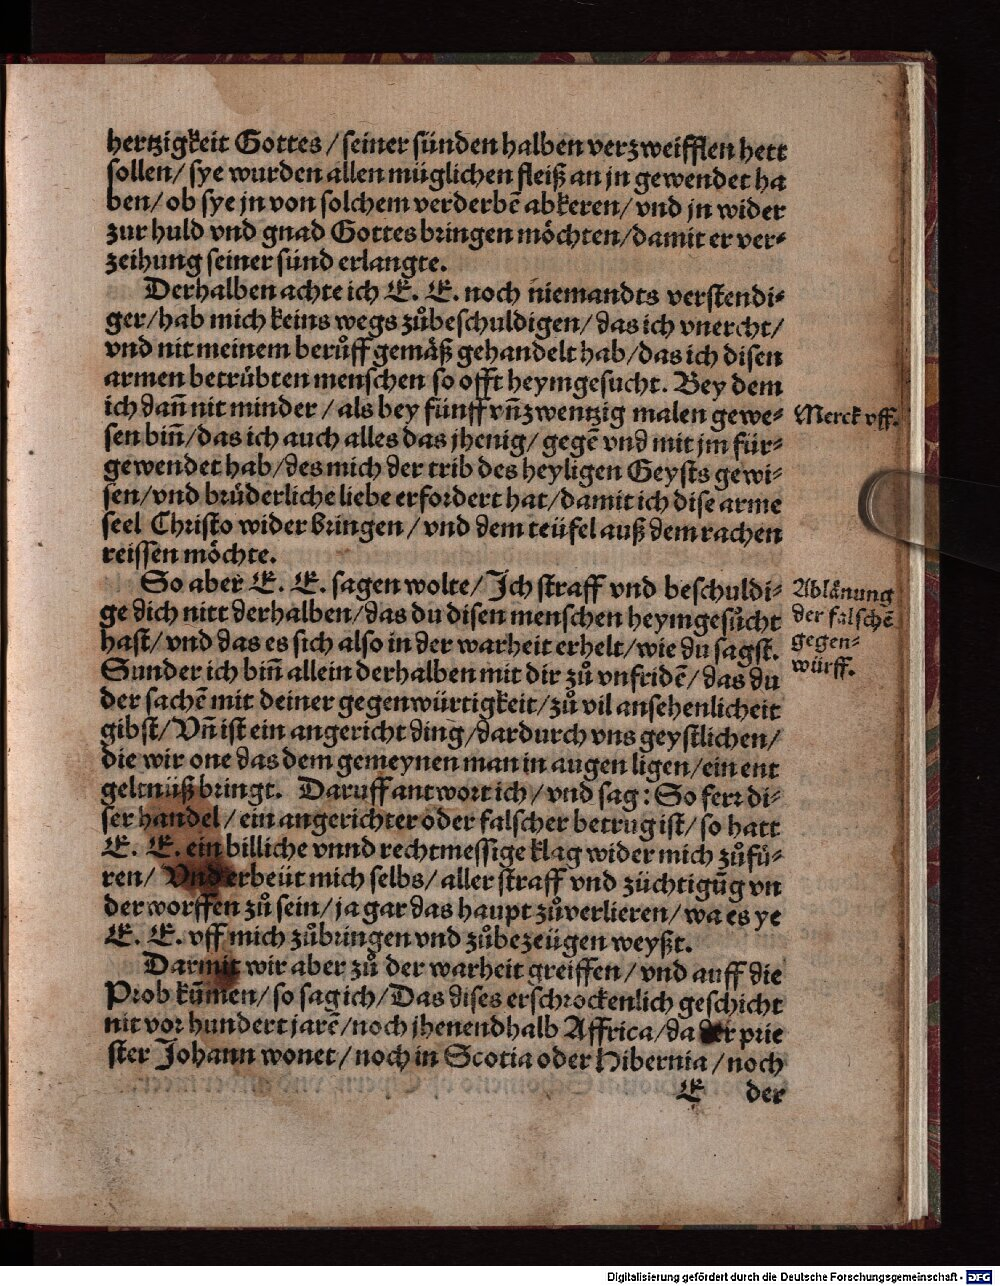 hertzigkeit Gottes / seiner sünden halben verzweifflen hett
sollen / sye wurden allen müglichen fleiß an jn gewendet ha
ben / ob sye jn von solchem verderbē abkeren / vnd jn wider
zur huld vnd gnad Gottes bringen möchten / damit er ver⸗
zeihung seiner sünd erlangte.
Derhalben achte ich E. E. noch niemandts verstendi⸗
ger / hab mich keins wegs zůbeschuldigen / das ich vnercht /
vnd nit meinem berůff gemäß gehandelt hab / das ich disen
armen betrübten menschen so offt heymgesucht. Bey dem
ich dañ nit minder / als bey fünff vñ zwentzig malen gewe⸗
sen biñ / das ich auch alles das jhenig / gegē vnd mit jm für⸗
gewendet hab / des mich der trib des heyligen Geysts gewi⸗
sen / vnd brüderliche liebe erfordert hat / damit ich dise arme
seel Christo wider bringen / vnd dem teüfel auß dem rachen
reissen möchte.
Merck vff.
So aber E. E. sagen wolte / Ich straff vnd beschuldi⸗
ge dich nitt derhalben / das du disen menschen heymgesůcht
hast / vnd das es sich also in der warheit erhelt / wie du sagst.
Sunder ich biñ allein derhalben mit dir zů vnfridē / das du
der sachē mit deiner gegenwürtigkeit / zů vil ansehenlicheit
gibst / Vñ ist ein angericht ding / dardurch vns geystlichen /
die wir one das dem gemeynen man in augen ligen / ein ent
geltnüß bringt. Daruff antwort ich / vnd sag : So ferr di⸗
ser handel / ein angerichter oder falscher betrug ist / so hatt
E. E. ein billiche vnnd rechtmessige klag wider mich zůfü⸗
ren / Vnd erbeüt mich selbs / aller straff vnd züchtigūg vn
der worffen zů sein / ja gar das haupt zůverlieren / wa es ye
E. E. vff mich zůbringen vnd zůbezeügen weyßt.
Ablänung
der falschē
gegen⸗
würff.
Darmit wir aber zů der warheit greiffen / vnd auff die
Prob kūmen / so sag ich / Das dises erschrockenlich geschicht
nit vor hundert jarē / noch jhenendhalb Affrica / da der prie
ster Johann wonet / noch in Scotia oder Hibernia / noch
E der
Digitalisierung gefördert durch die Deutsche Forschungsgemeinschaft - DFG